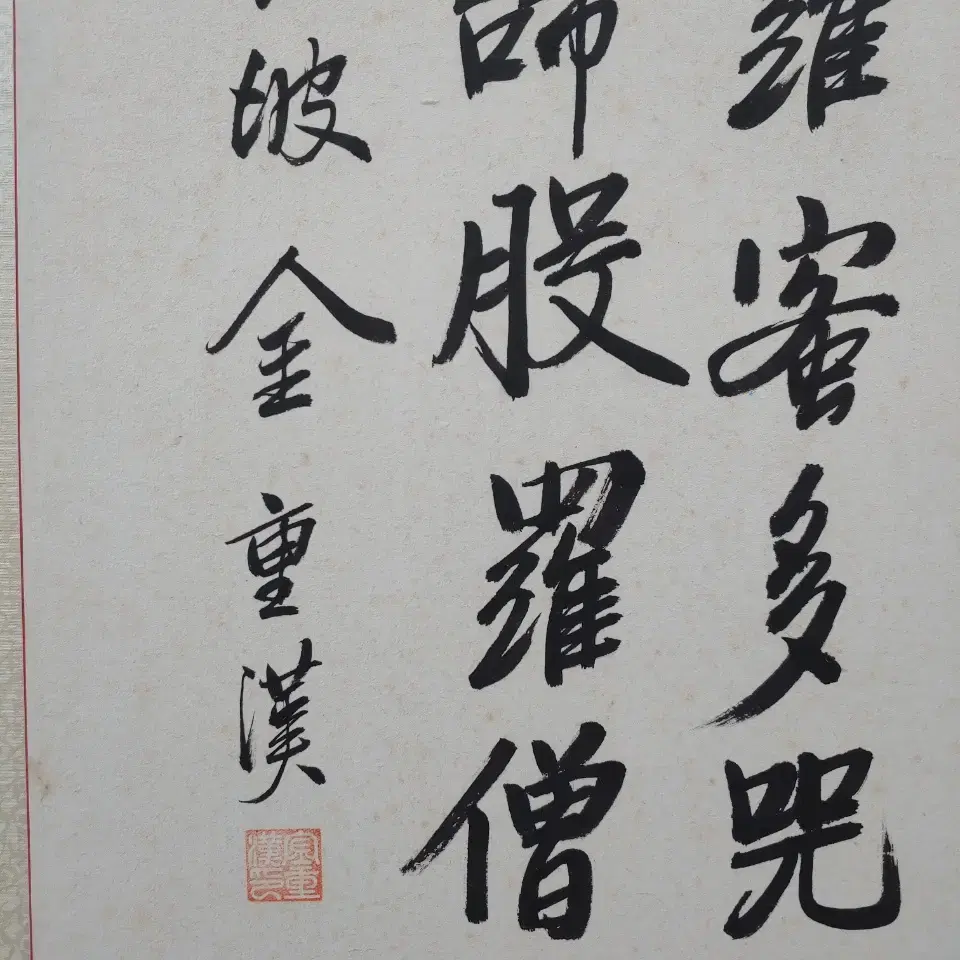 羅蜜多呪
股羅僧
坡金重漢
金重漢印